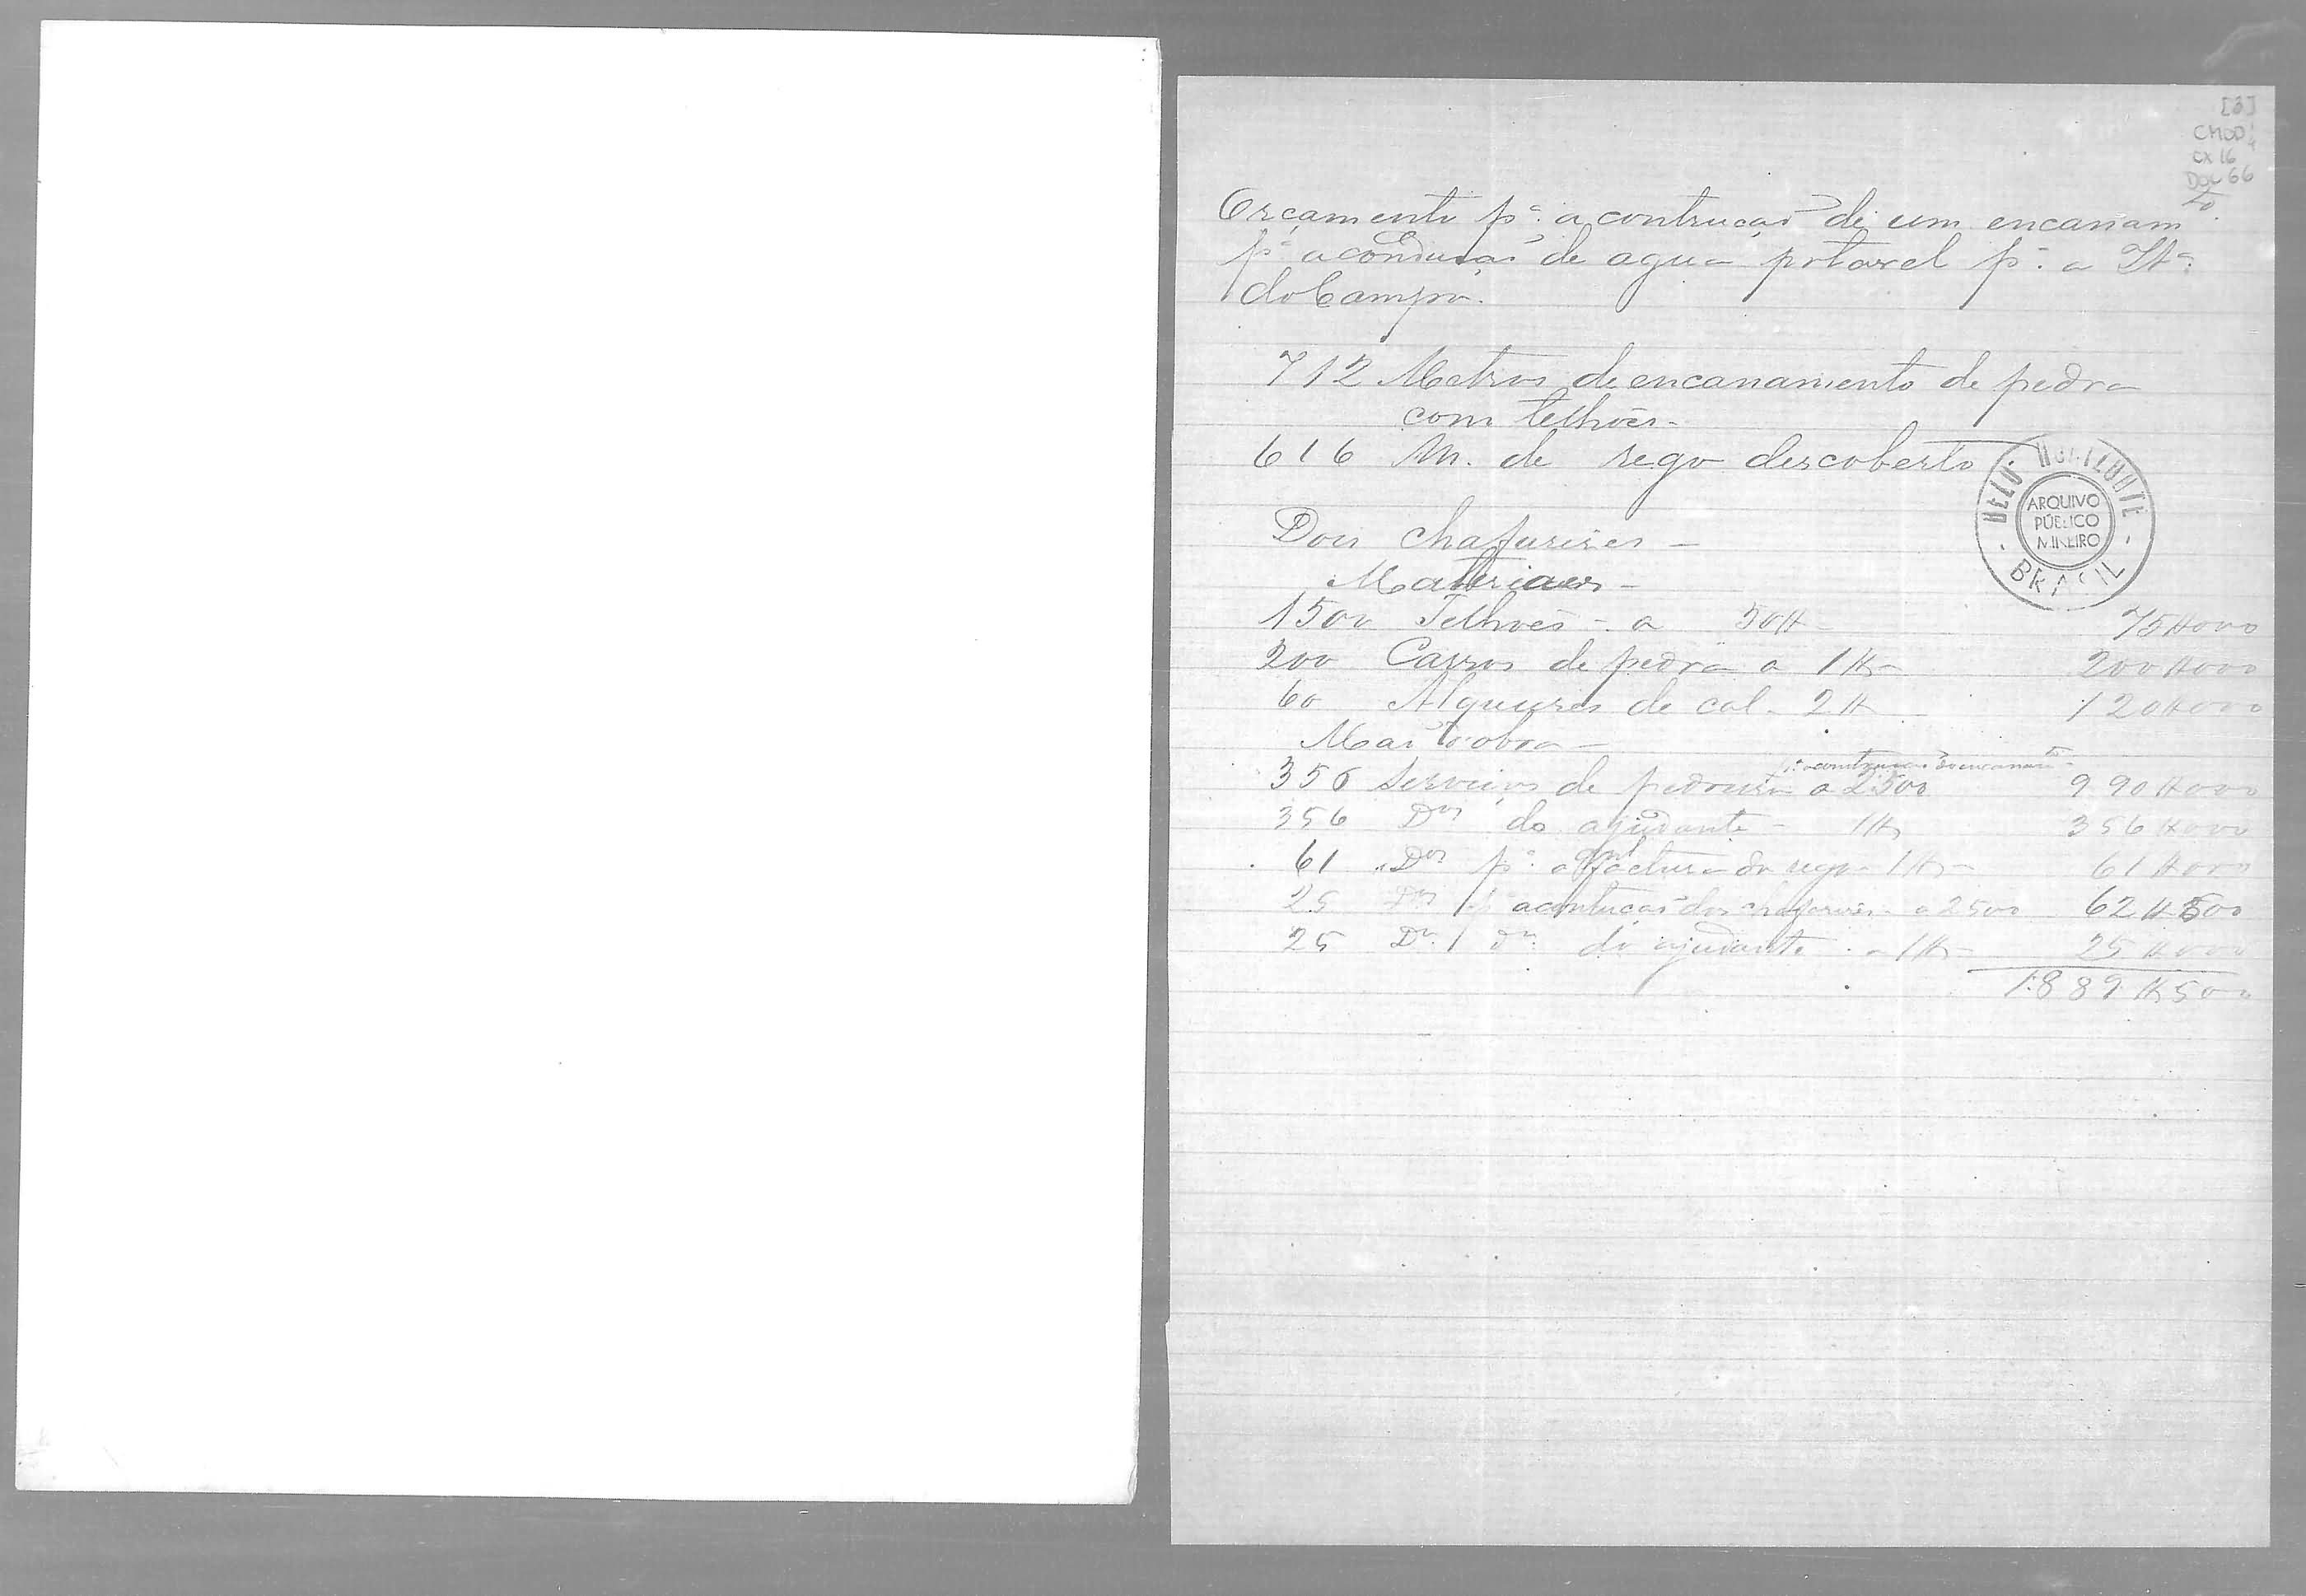 [3]
CMOP
CX 16
DOC 66
Orçamento pª a contrucaõ de um encanam
pª a conducaõ de agua potavel pª a Itª
do Campo.
712 Metros de encanamento de pedra
com telhões -
616 M. de rego descoberto
BELO HORIZONTE
ARQUIVO
PÚBLICO
MINEIRO
BRASIL
Dois chafarizes -
Materiaes -
1500 Telhoes - a 50# 75#000
200 Carros de pedra a 1#- 200#000
60 Alqueires de cal - 2# 120#000
Maõ d'obra -
pª a contrucaõ do encanamto
356 Serviços de pedreiro a 2500 990#000
356 Dos do ajudante - 1# 356#000
61 Dos pª a factura do rego 1#- 61#000
25 Dos pª a contrucaõ dos chafarizes - a 2500 62#500
25 Dos / do ajudante - a 1#- 25#000
1:889#500